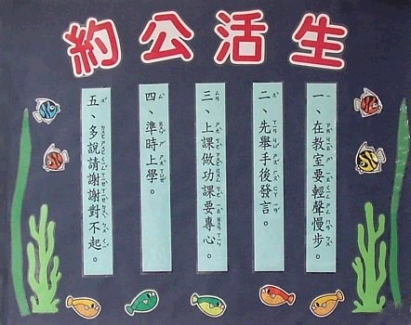 生活公約
一、在教室要輕聲慢步。
二、先舉手後發言。
三、上課做功課要專心。
四、準時上學。
五、多說請謝謝對不起。